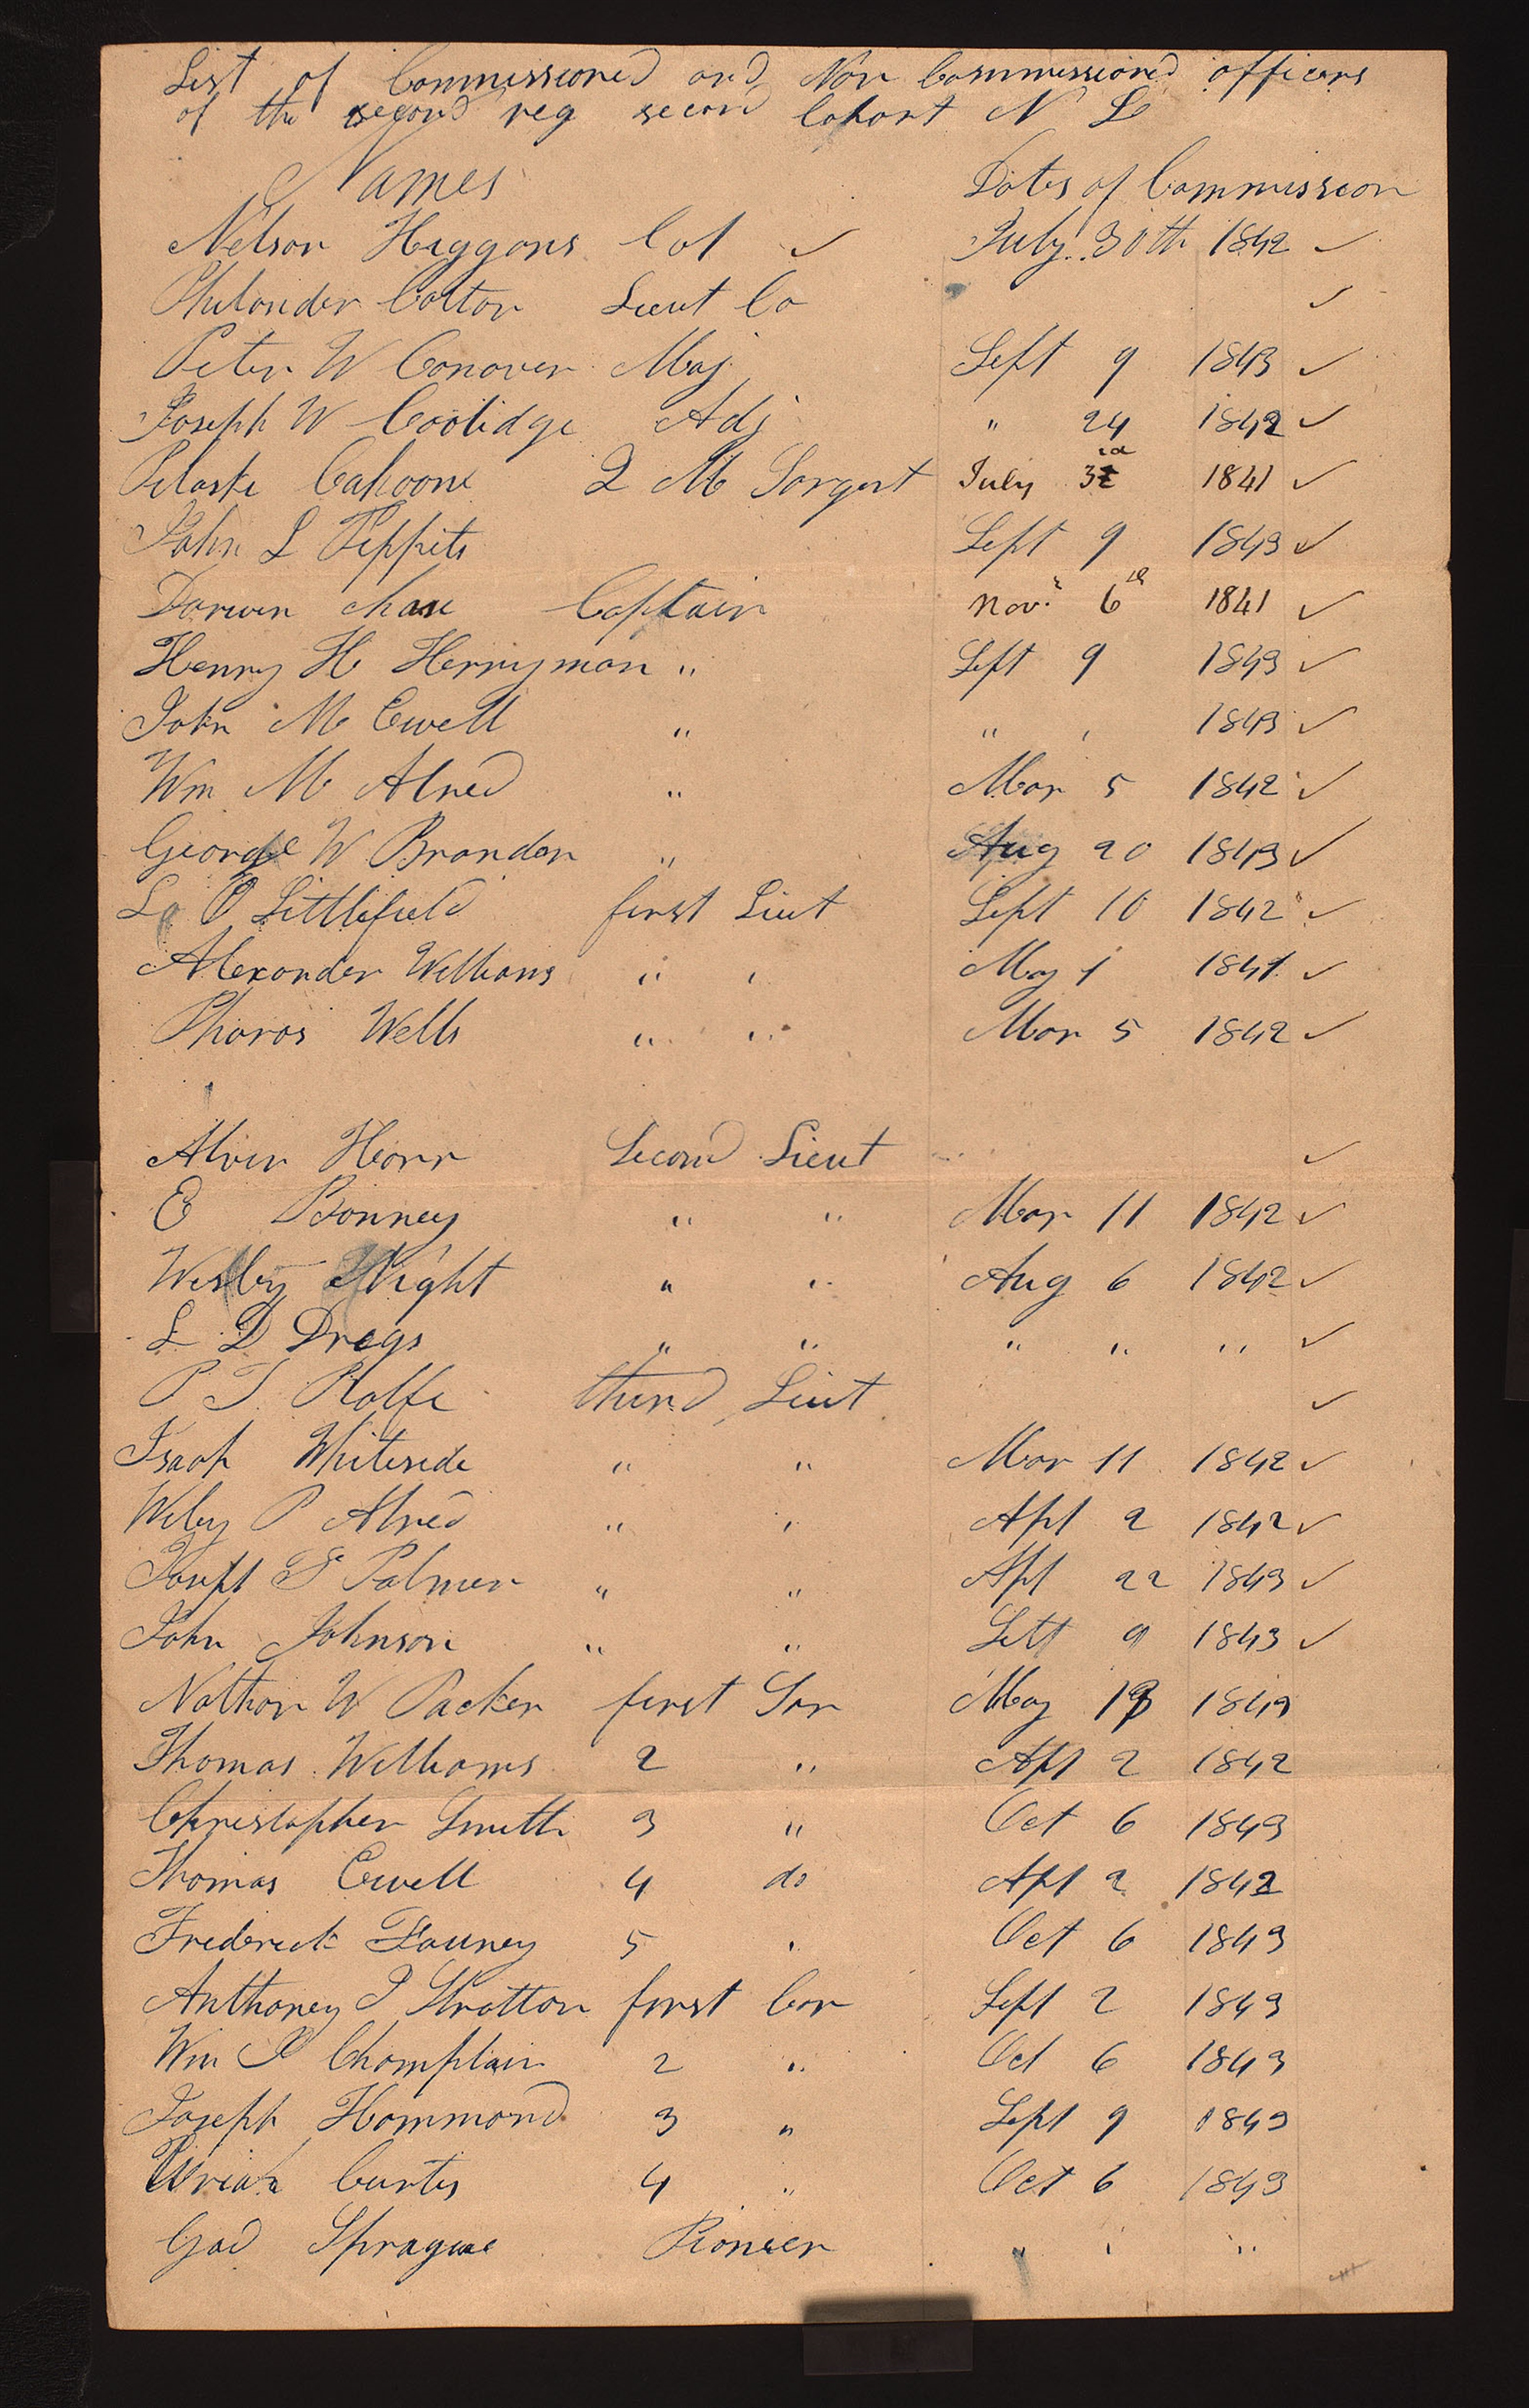 List of Commissioned and Non Commissioned officers
of the second reg second Cohort N L
Names Dates of Commission
Nelson Higgans Col ✓ July 30th 1842 ✓
Philander Colton Lieut Co ✓
Peter W Conover Maj Sept 9 1843 ✓
Joseph W Coolidge Adj " 24 1842 ✓
Pelaski Cahoone Q M Sargent July 3 1841 ✓
John L Tippits Sept 9 1843 ✓
Darwin Chase Captain Nov. 6th 1841 ✓
Henry H Herryman " Sept 9 1843 ✓
John M Ewell " " " 1843 ✓
Wm M Alred " Mar 5 1842 ✓
George W Brandon " Aug 20 1843 ✓
L O Littlefield first Liut Sept 10 1842 ✓
Alexander Williams " " May 1 1841 ✓
Pharos Wells " " Mar 5 1842 ✓
Alvin Horr Second Lieut ✓
E Bonney " " Mar 11 1842 ✓
Wesley Night " " Aug 6 1842 ✓
L D Dregs " " " " " ✓
P T Rolfe third Liut ✓
Isaah Whiteside " " Mar 11 1842 ✓
Wiley P Alred " " Apl 2 1842 ✓
Joseph S Palmer " " Apl 22 1843 ✓
John Johnson " " Sett 9 1843 ✓
Nathan W Packer first Sar May 13 1843
Thomas Williams 2 " Apl 2 1842
Christopher Smith 3 " Oct 6 1843
Thomas Ewell 4 do Apl 2 1842
Frederick Fauney 5 " Oct 6 1843
Anthoney P Stratton first Cor Sept 2 1843
Wm P Champlain 2 " Oct 6 1843
Joseph Hammond 3 " Sept 9 1843
Uriah Curtis 4 " Oct 6 1843
Gad Sprague Pioneer " " "